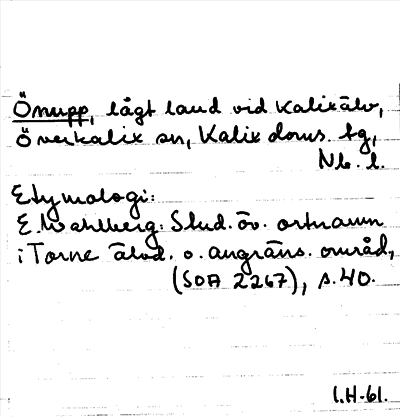 Önupp, lågt land vid Kalixälv,
Överkalix sn, Kalix doms. tg,
Nb. l.
Etymologi:
E. Wahlberg: Stud. öv. ortnamn
i Torne älvd. o. angräns. områd,
(SOA 2267), s. 40.
I.H-61.